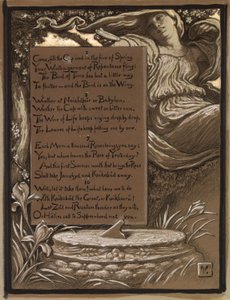 Come, fill the Cup, and in the fire of Spring
Your Winter-garment of Repentance fling:
The Bird of Time has but a little way
To flutter — and the Bird is on the Wing.
Whether at Naishápúr or Babylon,
Whether the Cup with sweet or bitter run,
The Wine of Life keeps oozing drop by drop,
The Leaves of Life keep falling one by one.
Each Morn a thousand Roses brings, you say;
Yes, but where leaves the Rose of Yesterday?
And this first Summer month that brings the Rose
Shall take Jamshyd and Kaikobád away.
10
Well, let it take them! What have we to do
With Kaikobád the Great, or Kaikhosrú?
Let Zál and Rustum as they will,
Or Hátim call to Supper — heed not you.